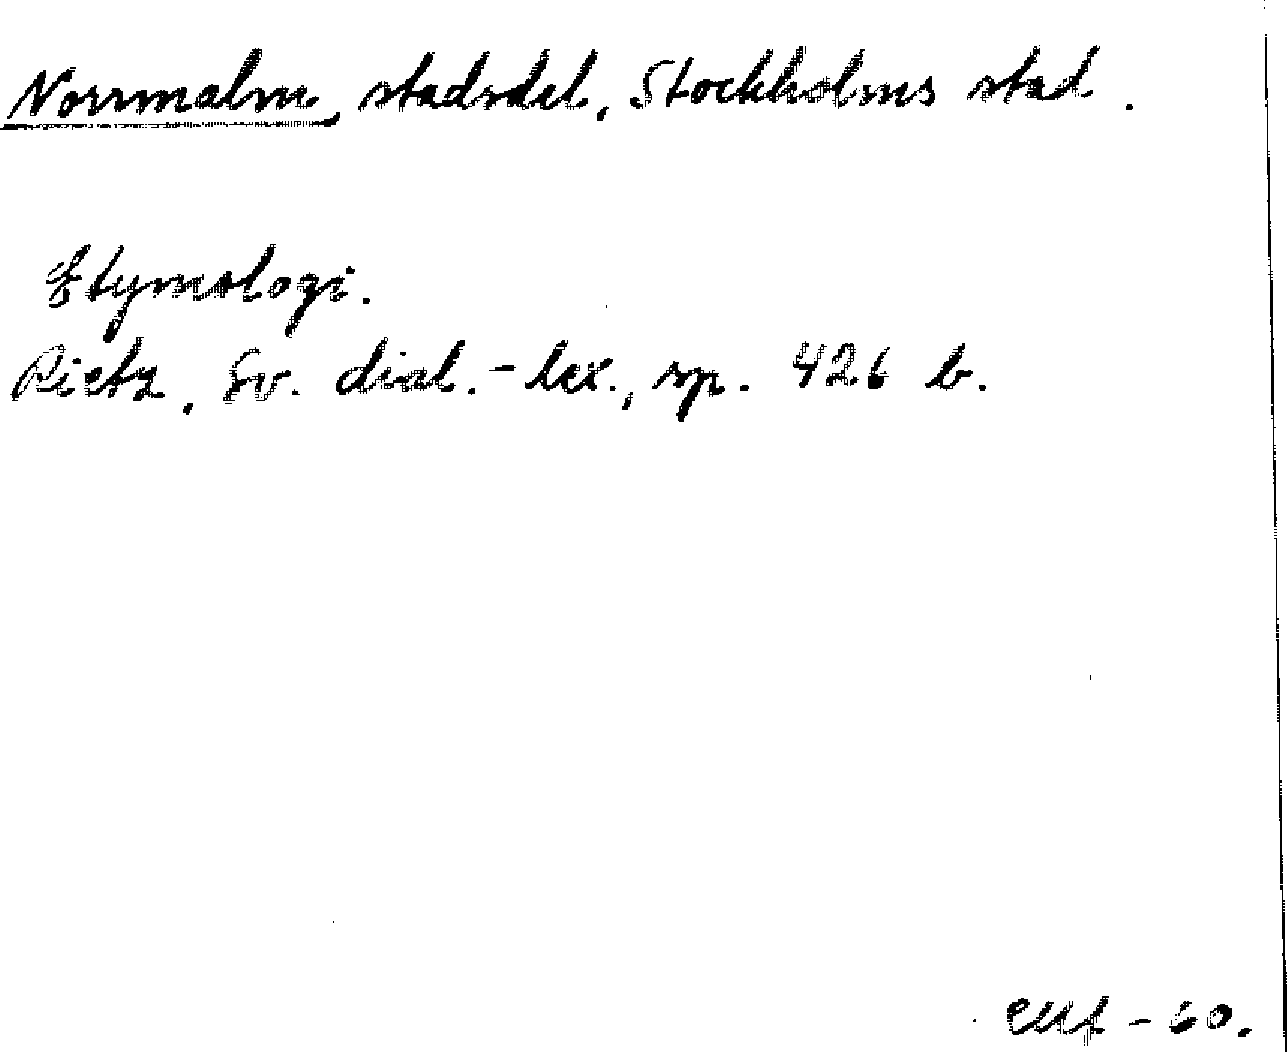 Norrmalm, stadsdel, Stockholms stad.
Etymologi.
Rietz, Sv. dial.-lex., sp. 426 b.
- 60.